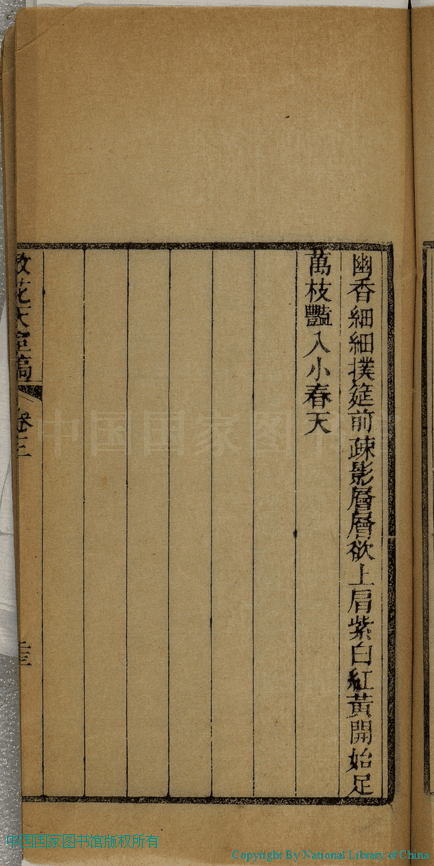 幽香細細撲筵前疎影層層欲上肩紫白紅黃開始足
萬枝豔入小春天
散花天室稿
卷三
中国国家图
中国国家图书馆版权所有
Copyright By National Library of China